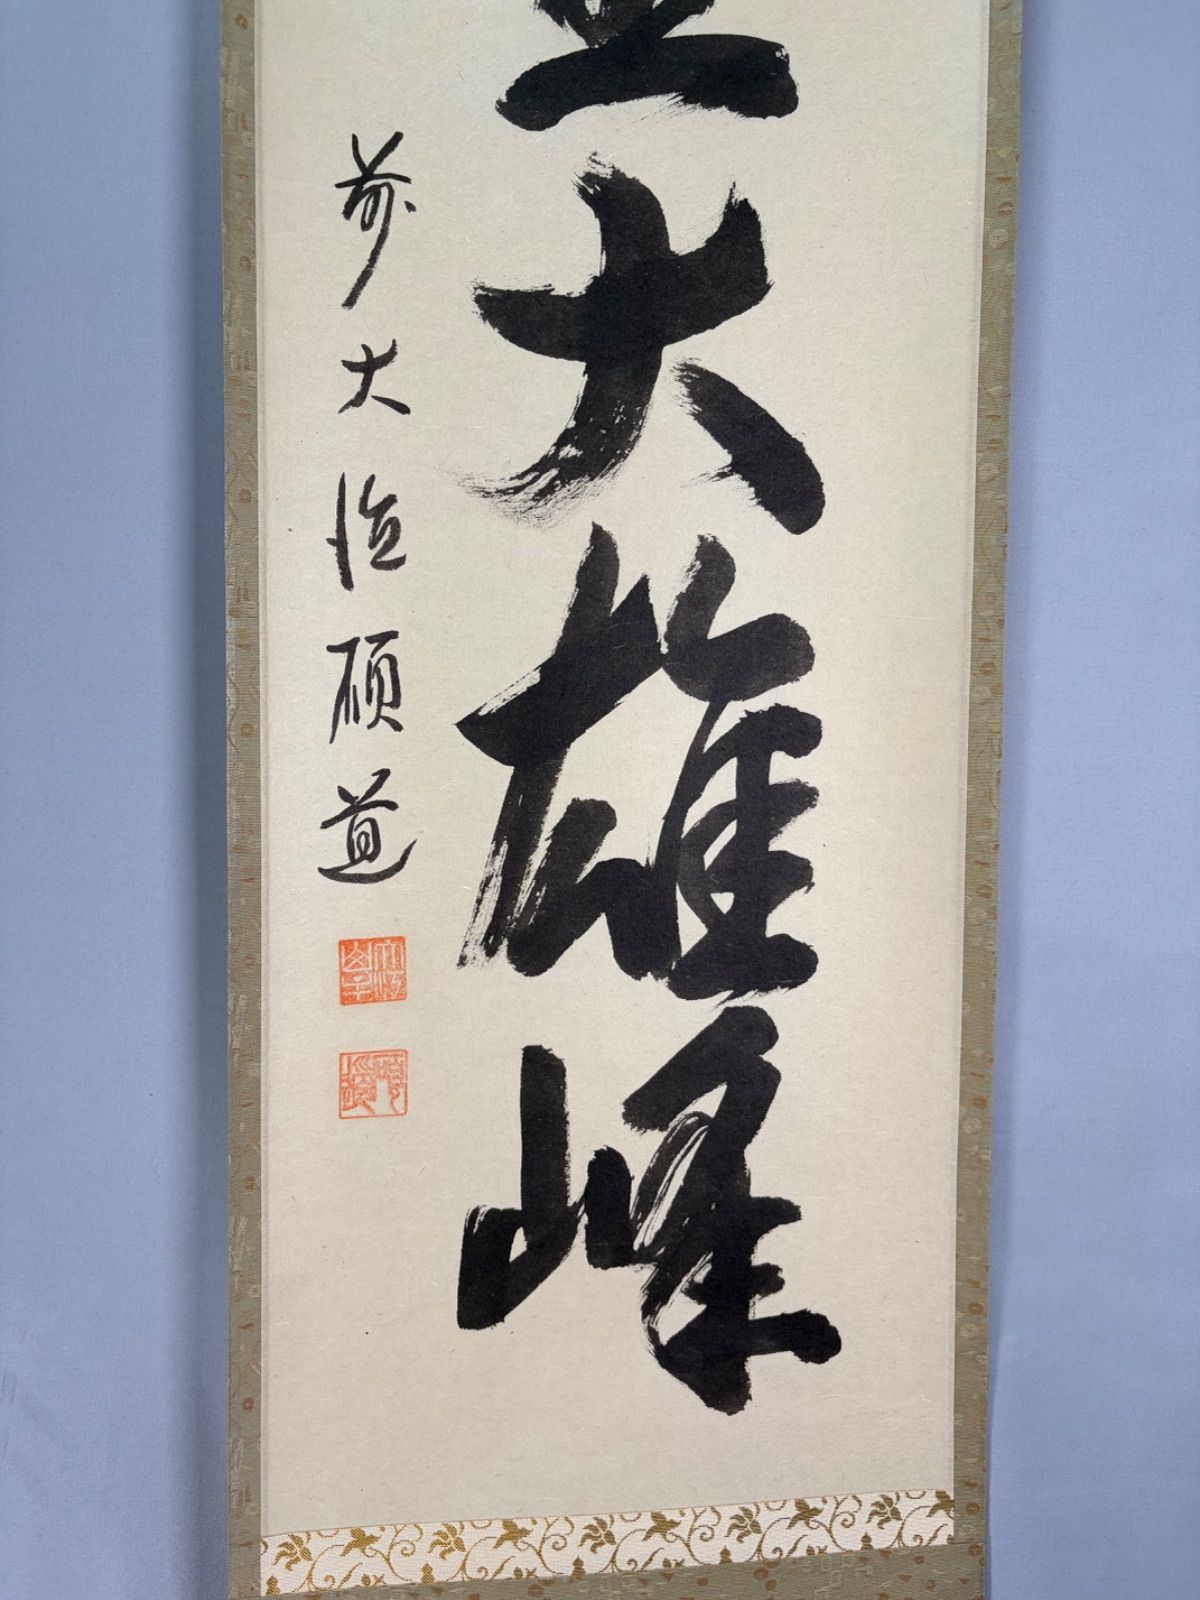 坐大雄峰
前大徳碩道